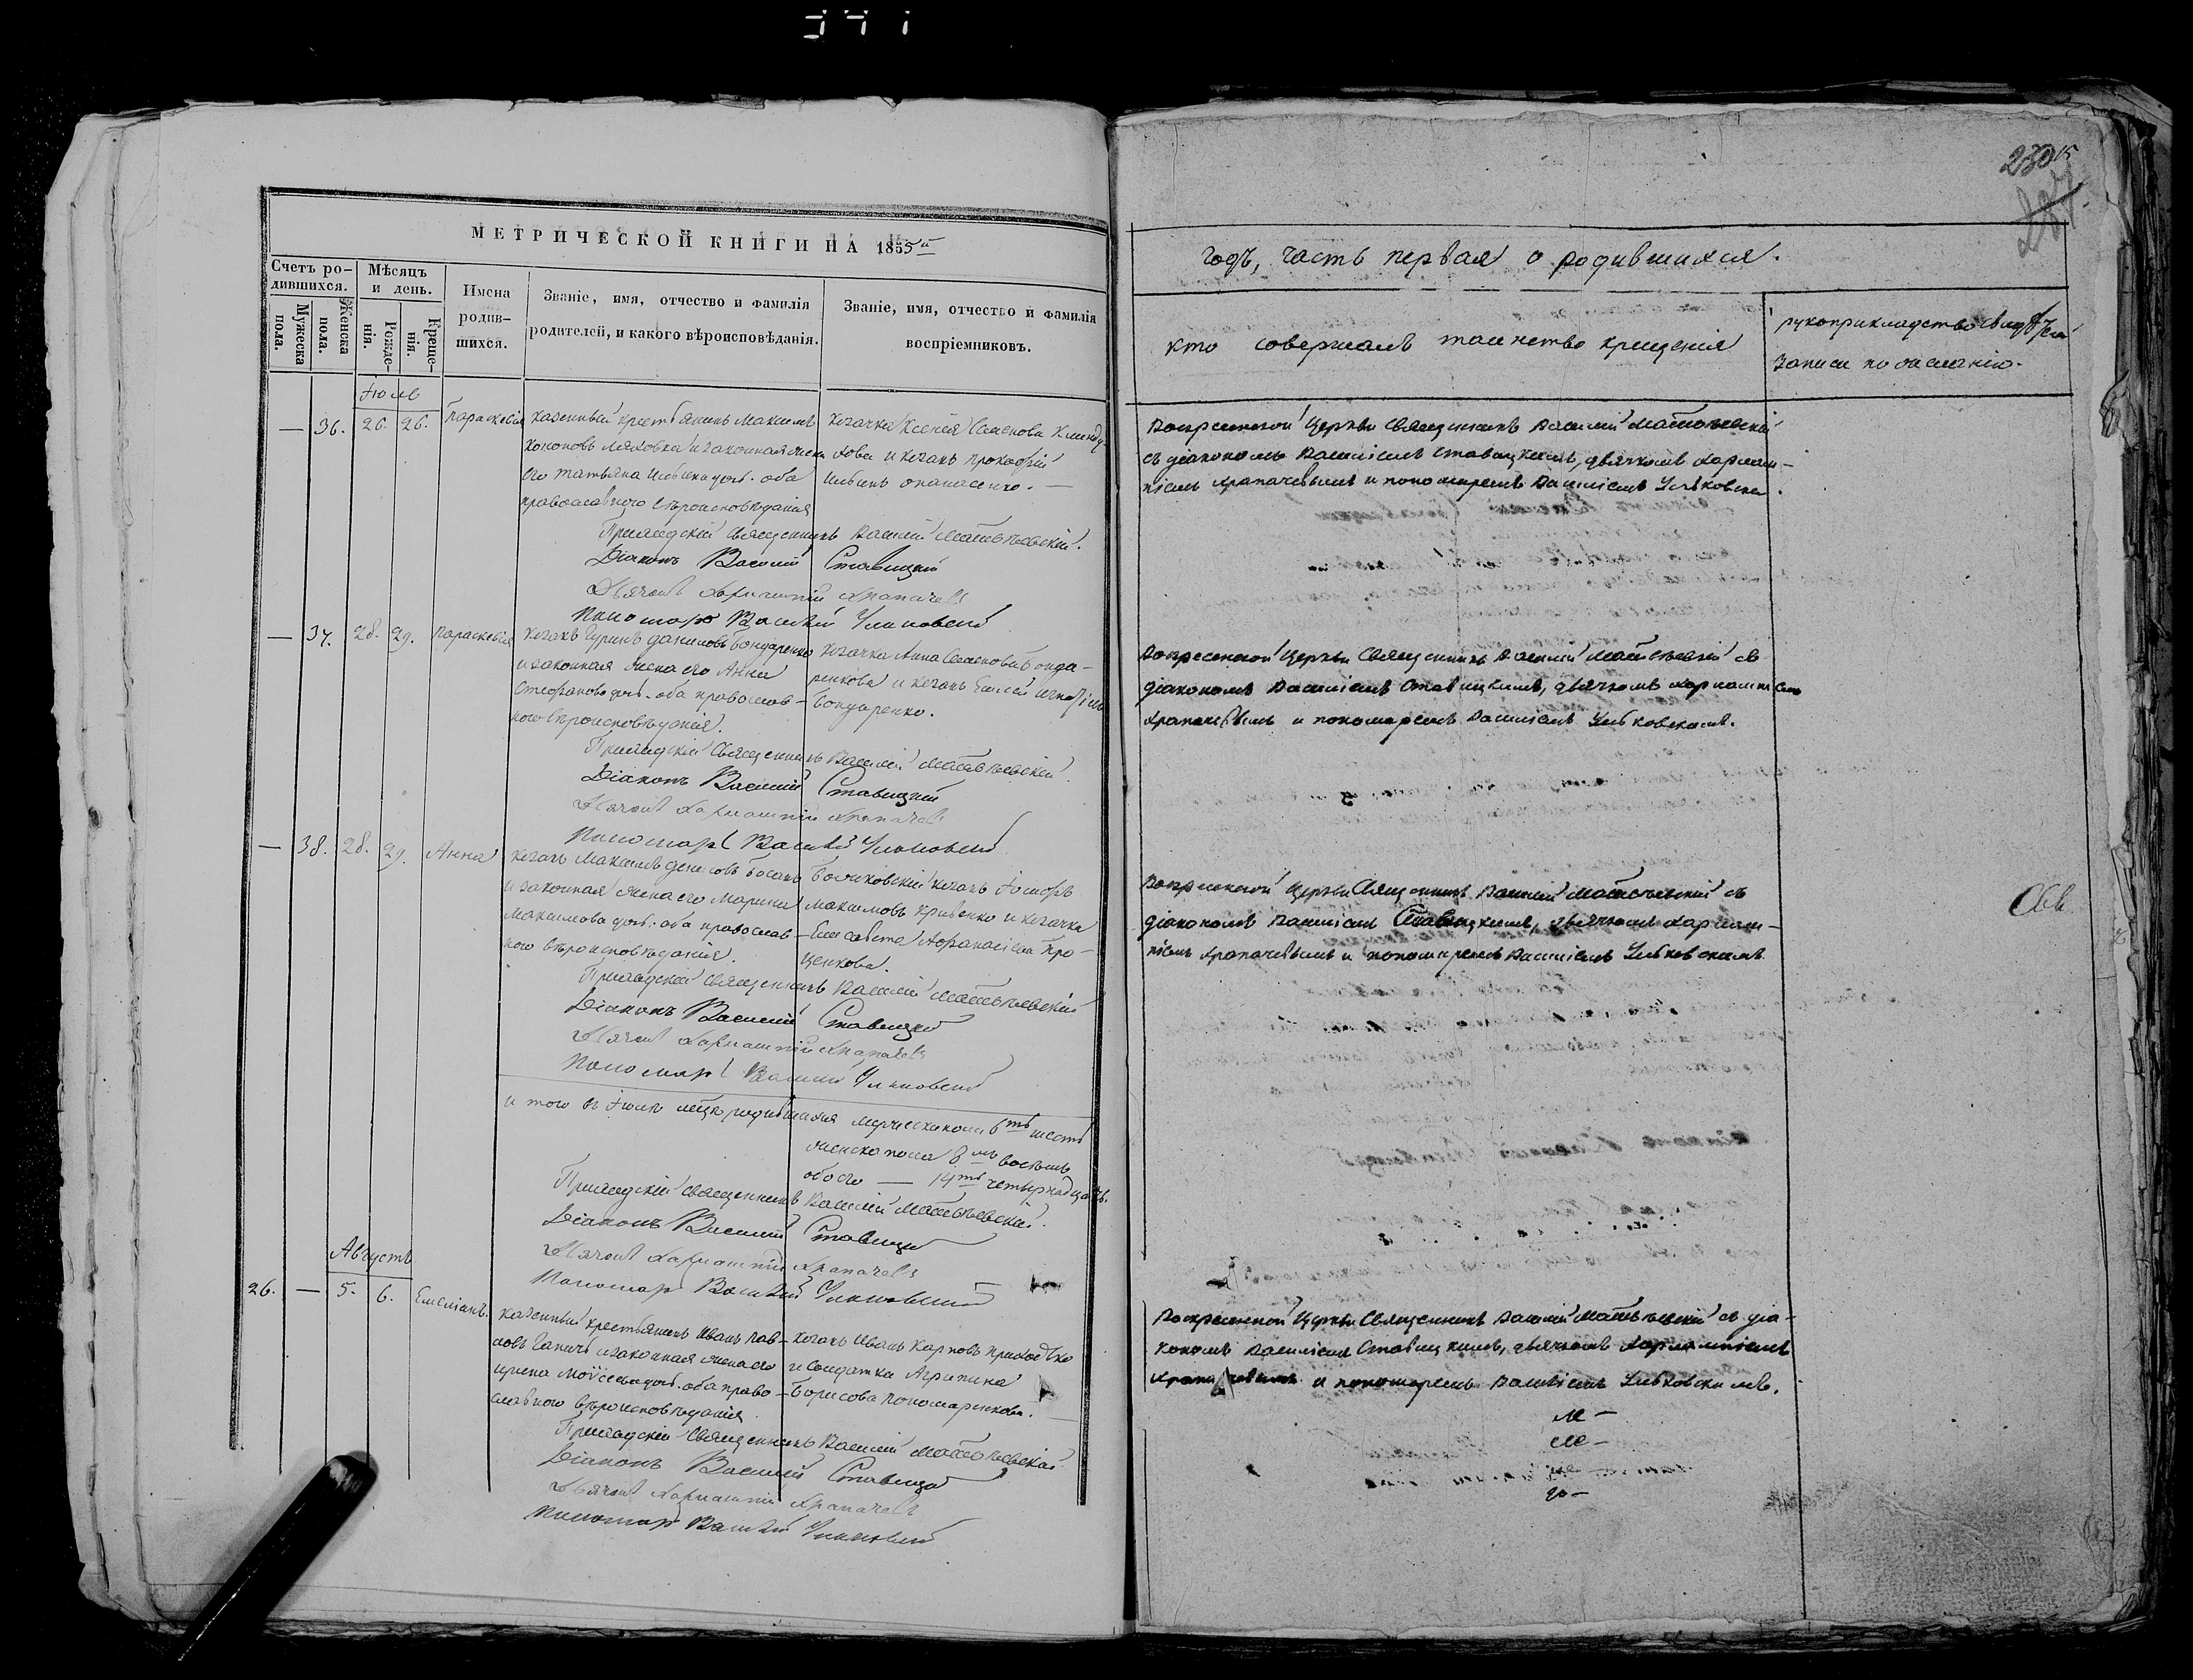 230
МЕТРИЧЕСКОЙ КНИГИ НА 1855й
Счетъ родившихся.
Мѣсяцъ и день.
Имена родившихся.
Званіе, имя, отчество и фамилія родителей, и какого вѣроисповѣданія.
Званіе, имя, отчество и фамилія воспріемниковъ.
Мужеска пола.
Женска пола.
Рожденія.
Крещенія.
годъ, часть первая о родившихся.
кто совершалъ таинство крещенія
рукоприкладство свидѣтелей записи по желанію.
Іюль
— 36. 26. 26. Параскевія
казенный крестьянинъ Максимъ
Кононовъ Ляховка и законная жена
его Татьяна Ильина дочь. оба
православнаго вѣроисповѣданія
козачка Ксенія Семенова
и козакъ Прокофій
Ильинъ Опанасенко. —
Воскресенской Церкви Священникъ Василій Матвѣевскій
съ діакономъ Василіемъ Ставицкимъ, дьячкомъ Харлам-
піемъ Храпачевымъ и пономаремъ Василіемъ
Приходскій Священникъ Василій Матвѣевскій.
Діаконъ Василій Ставицкій
Дьячокъ Харлампій Храпачевъ
Пономарь Василій
— 37. 28. 29. Параскевія
козакъ Гурій Даниловъ Бондаренко
и законная жена его Анна
Стефанова дочь. оба православ-
ного вѣроисповѣданія.
козачка Анна Семенова Бонда-
ренкова и козакъ Елисей
Бондаренко.
Воскресенской Церкви Священникъ Василій Матвѣевскій съ
діакономъ Василіемъ Ставицкимъ, дьячкомъ Харлампіемъ
Храпачевымъ и пономаремъ Василіемъ
Приходскій Священникъ Василій Матвѣевскій.
Діаконъ Василій Ставицкій
Дьячокъ Харлампій Храпачевъ
Пономарь Василій
— 38. 28. 29. Анна
козакъ Максимъ Денисовъ
и законная жена его Марина
Максимова дочь. оба православ-
ного вѣроисповѣданія.
козакъ
Максимовъ Кривенко и козачка
Елисавета Афанасіева Про-
ценкова.
Воскресенской Церкви Священникъ Василій Матвѣевскій съ
діакономъ Василіемъ Ставицкимъ, дьячкомъ Харлам-
піемъ Храпачевымъ и пономаремъ Василіемъ
Приходскій Священникъ Василій Матвѣевскій
Діаконъ Василій Ставицкій
Дьячокъ Харлампій Храпачевъ
Пономарь Василій
и того въ Іюлѣ мцѣ родившихся мужеска пола 6ть шесть
женска пола 8мь восѣмь
обоего — 14ть четырнадцать.
Приходскій Священникъ Василій Матвѣевскій.
Діаконъ Василій Ставицкій
Дьячокъ Харлампій Храпачевъ
Пономарь Василій
Августъ
26. — 5. 6. Емеліанъ.
казенный крестьянинъ Иванъ Пав-
ловъ Гапичъ и законная жена его
Ирина Моѵсеева дочь. оба право-
славного вѣроисповѣданія
козакъ Иванъ Карповъ Приходько
и солдатка Агрипина
Борисова Пономаренкова. —
Воскресенской Церкви Священникъ Василій Матвѣевскій съ діа-
кономъ Василіемъ Ставицкимъ, дьячкомъ Харлампіемъ
Храпачевымъ и пономаремъ Василіемъ
Приходскій Священникъ Василій Матвѣевскій
Діаконъ Василій Ставицкій
Дьячокъ Харлампій Храпачевъ
Пономарь Василій